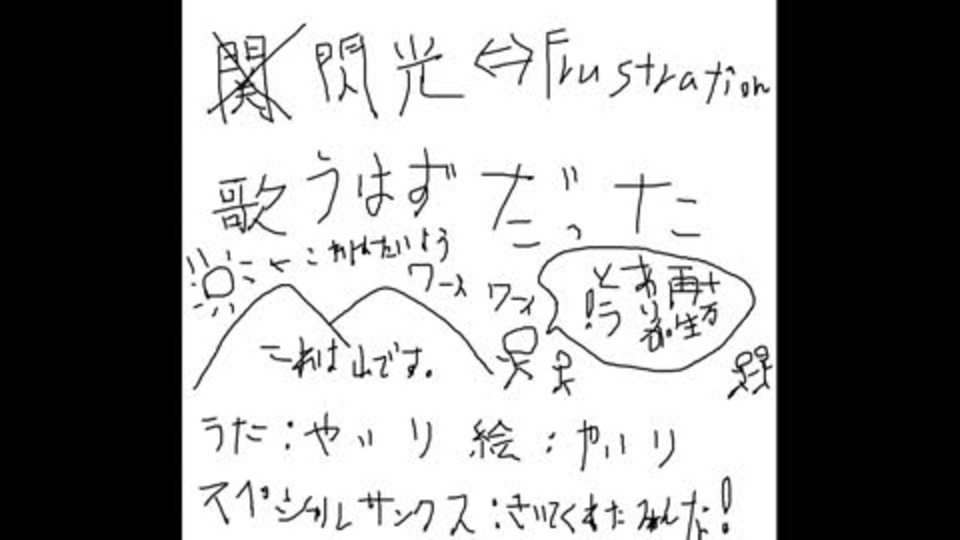 関 閃光⇔Frustration
歌うはずだった
←これはたいよう
ワース
ワーイ
十万
再生
ありが
とう!
これは山です。
うた:やいり 絵:やいり
スペシャルサンクス:きいてくれたみんな!